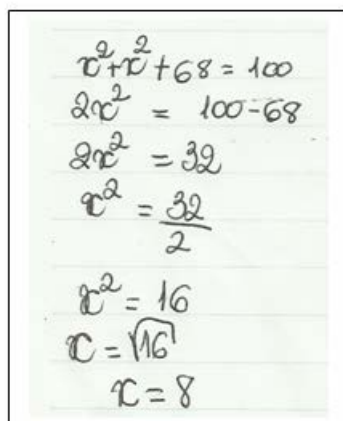 x²+x²+68=100
2x² = 100-68
2x² = 32
x² = 32/2
x² = 16
x = √16
x = 8